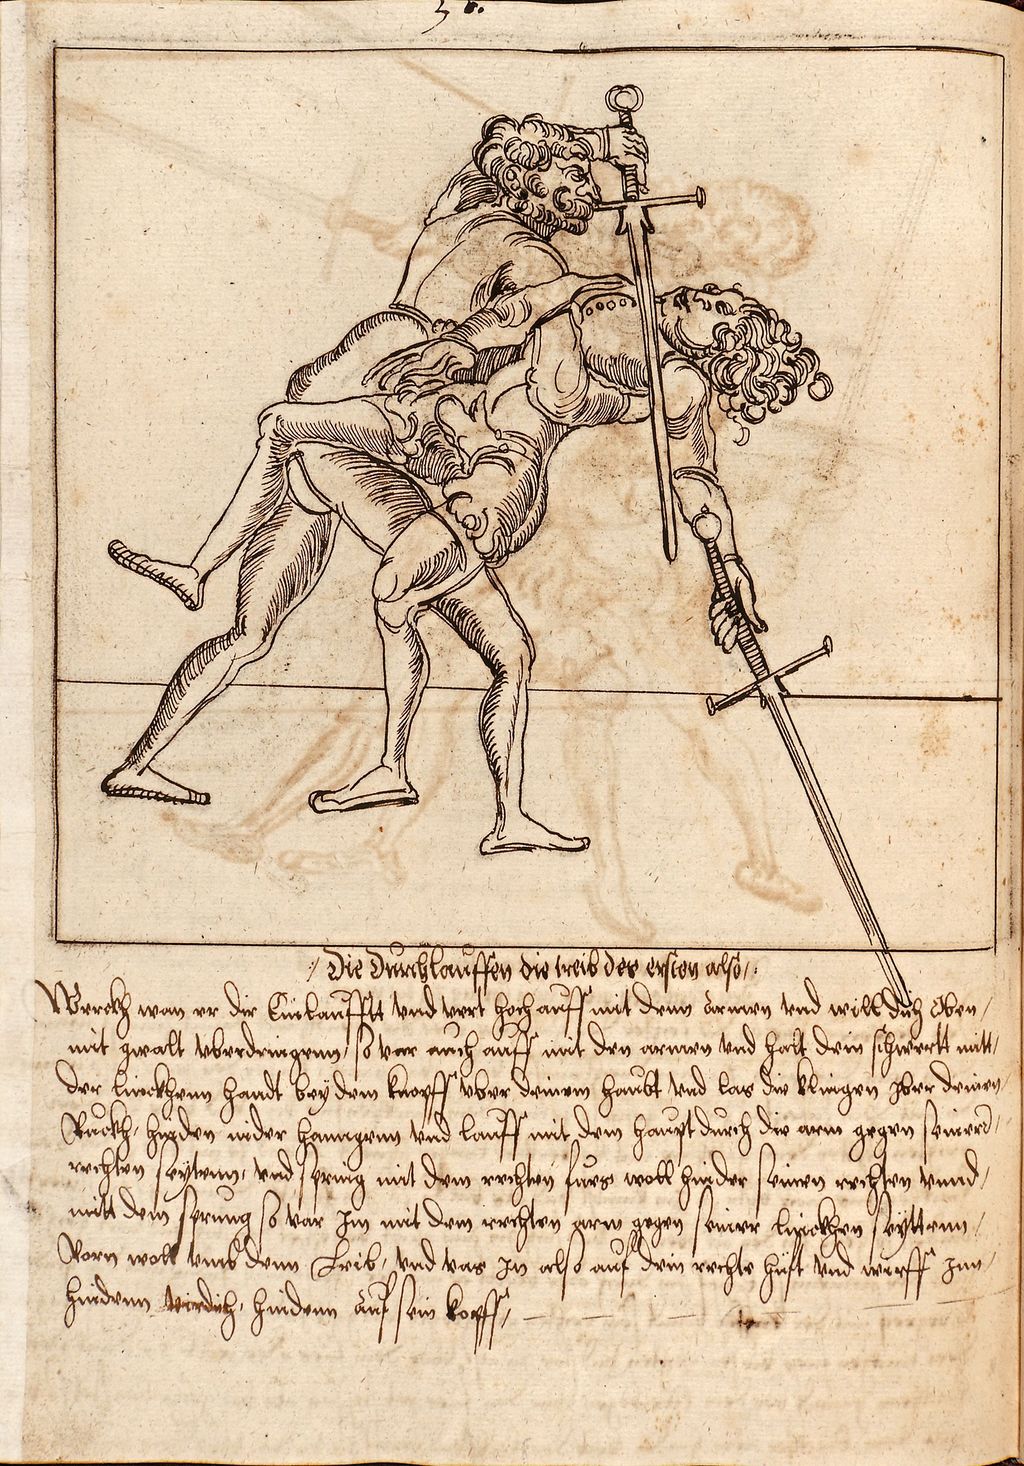 36.
Die Durchlauffen die treib des ersten also /.
Merckh wan er dir Einlaufftt vnd vert hoch auff mit denn armen vnd will dich Oben /
mit gwalt vberdringenn / so var auch auff mit den armen vnd halt dein schwertt mitt /
der linckhenn handt bey dem knopff vber deinem haubt vnd las die klingen yber deinen /
Ruckh / hinden nider hanngenn vnd lauff mit dem haupt durch die arm gegen seinerr /
rechten seyttenn / vnd spring mit dem rechten fues woll hinder seinen rechten vnnd /
mitt dem sprung so var Im mit dem rechten arm gegen seinerr linckhen seyttenn /
Vorn woll vmb denn Leib / vnd vas In also auf dein rechte hüft vnd wirff Inn /
hindenn hinden auf sein kopff /